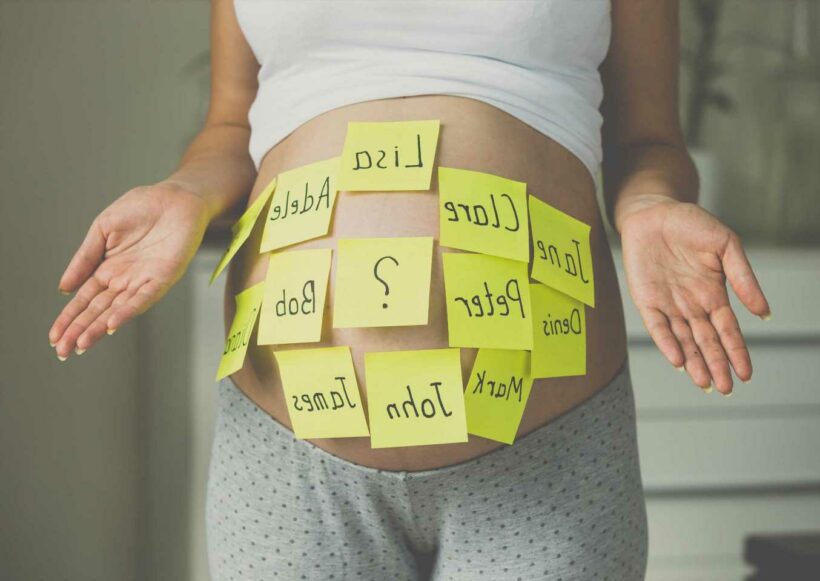 Lisa
Adele
Clare
Jane
Bob
?
Peter
Denis
James
John
Mark